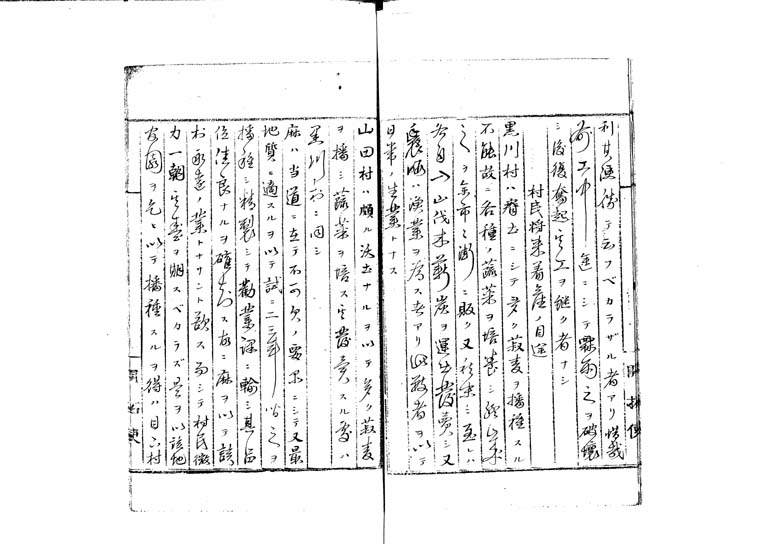 利其廉 テ云フベカラザル者アリ惜哉
前工中途ニシテ霖雨之ヲ破壞
シ後復奮起其工ヲ継ク者ナシ
村民将来着産ノ目途
黒川村ハ瘠土ニシテ多ク菽麦ヲ播種スル
不能故ニ各種ノ蔬菜ヲ培養シ
之ヲ余市 ニ販ク又 ニ至レハ
各自入山伐木薪炭ヲ運出發賣シ又
ハ漁業ヲ為ス者アリ此數者ヲ以テ
日常ノ生業トナス
山田村ハ頗ル沃土ナルヲ以テ多ク菽麦
ヲ播シ蔬菜ヲ培ス其發賣スル處ハ
黒川村ニ同シ
麻ハ当道ニ在テ不可欠ノ要品ニシテ又最
地質ニ適スルヲ以テ試ニ二三年前ヨリ之ヲ
播種シ精製シテ勧業課ニ輸シ其品
位佳良ナルヲ確知ス故ニ麻ヲ以テ該
村永遠ノ業トナサント欲ス而シテ村民微
力一朝其 ヲ期スベカラズ是ヲ以該地
官園ヲ以テ播種スルヲ得ハ目下村
開拓使
開拓使